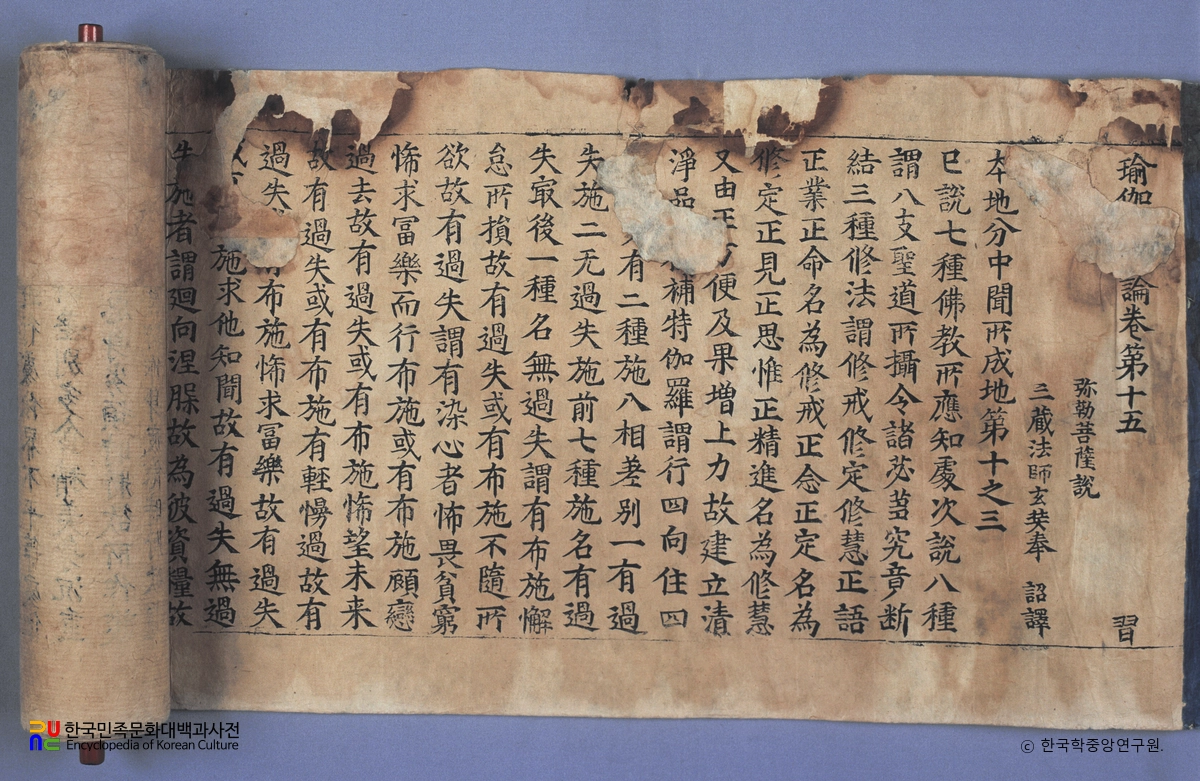 瑜伽 論卷第十五 習
弥勒菩薩說
三藏法師玄奘奉 詔譯
本地分中聞所成地第十之三
已說七種佛教所應知處次說八種
謂八支聖道所攝令諸苾芻究竟断
結三種修法謂修戒修定修慧正語
正業正命名為修戒正念正定名為
修定正見正思惟正精進名為修慧
又由正方便及果增上力故建立清
淨品 補特伽羅謂行四向住四
有二種施八相差别一有過
失施二无過失施前七種施名有過
失㝡後一種名無過失謂有布施懈
怠所損故有過失或有布施不隨所
欲故有過失謂有染心者怖畏貧窮
悕求冨樂而行布施或有布施顧戀
過去故有過失或有布施悕望未来
故有過失或有布施有輕慢過故有
過失 有布施悕求冨樂故有過失
施求他知聞故有過失無過
失施者謂迴向涅槃故為彼資糧故
한국민족문화대백과사전
Encyclopedia of Korean Culture
© 한국학중앙연구원.